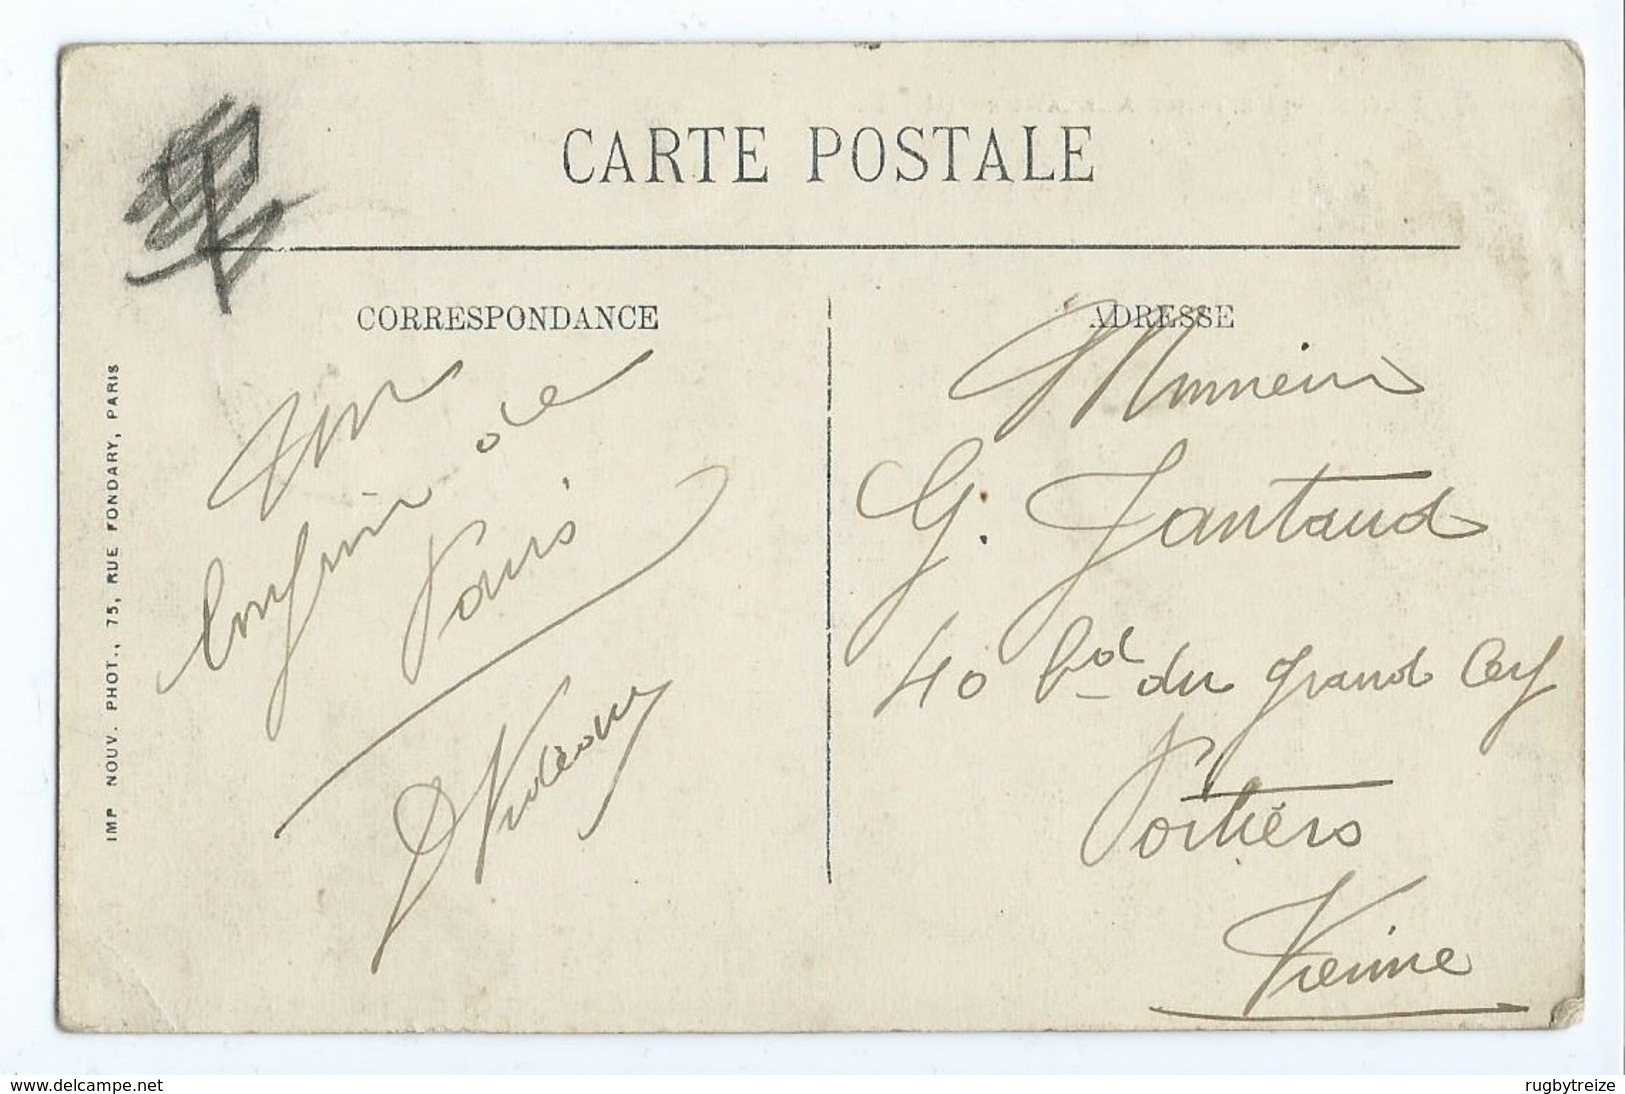 CARTE POSTALE
CORRESPONDANCE
ADRESSE
IMP NOUV. PHOT., 75, RUE FONDARY, PARIS
Un
de
Paris
Monsieur
G. Jantaud
40 bd du grand Cerf
Poitiers
Vienne
www.delcampe.net
rugbytreize